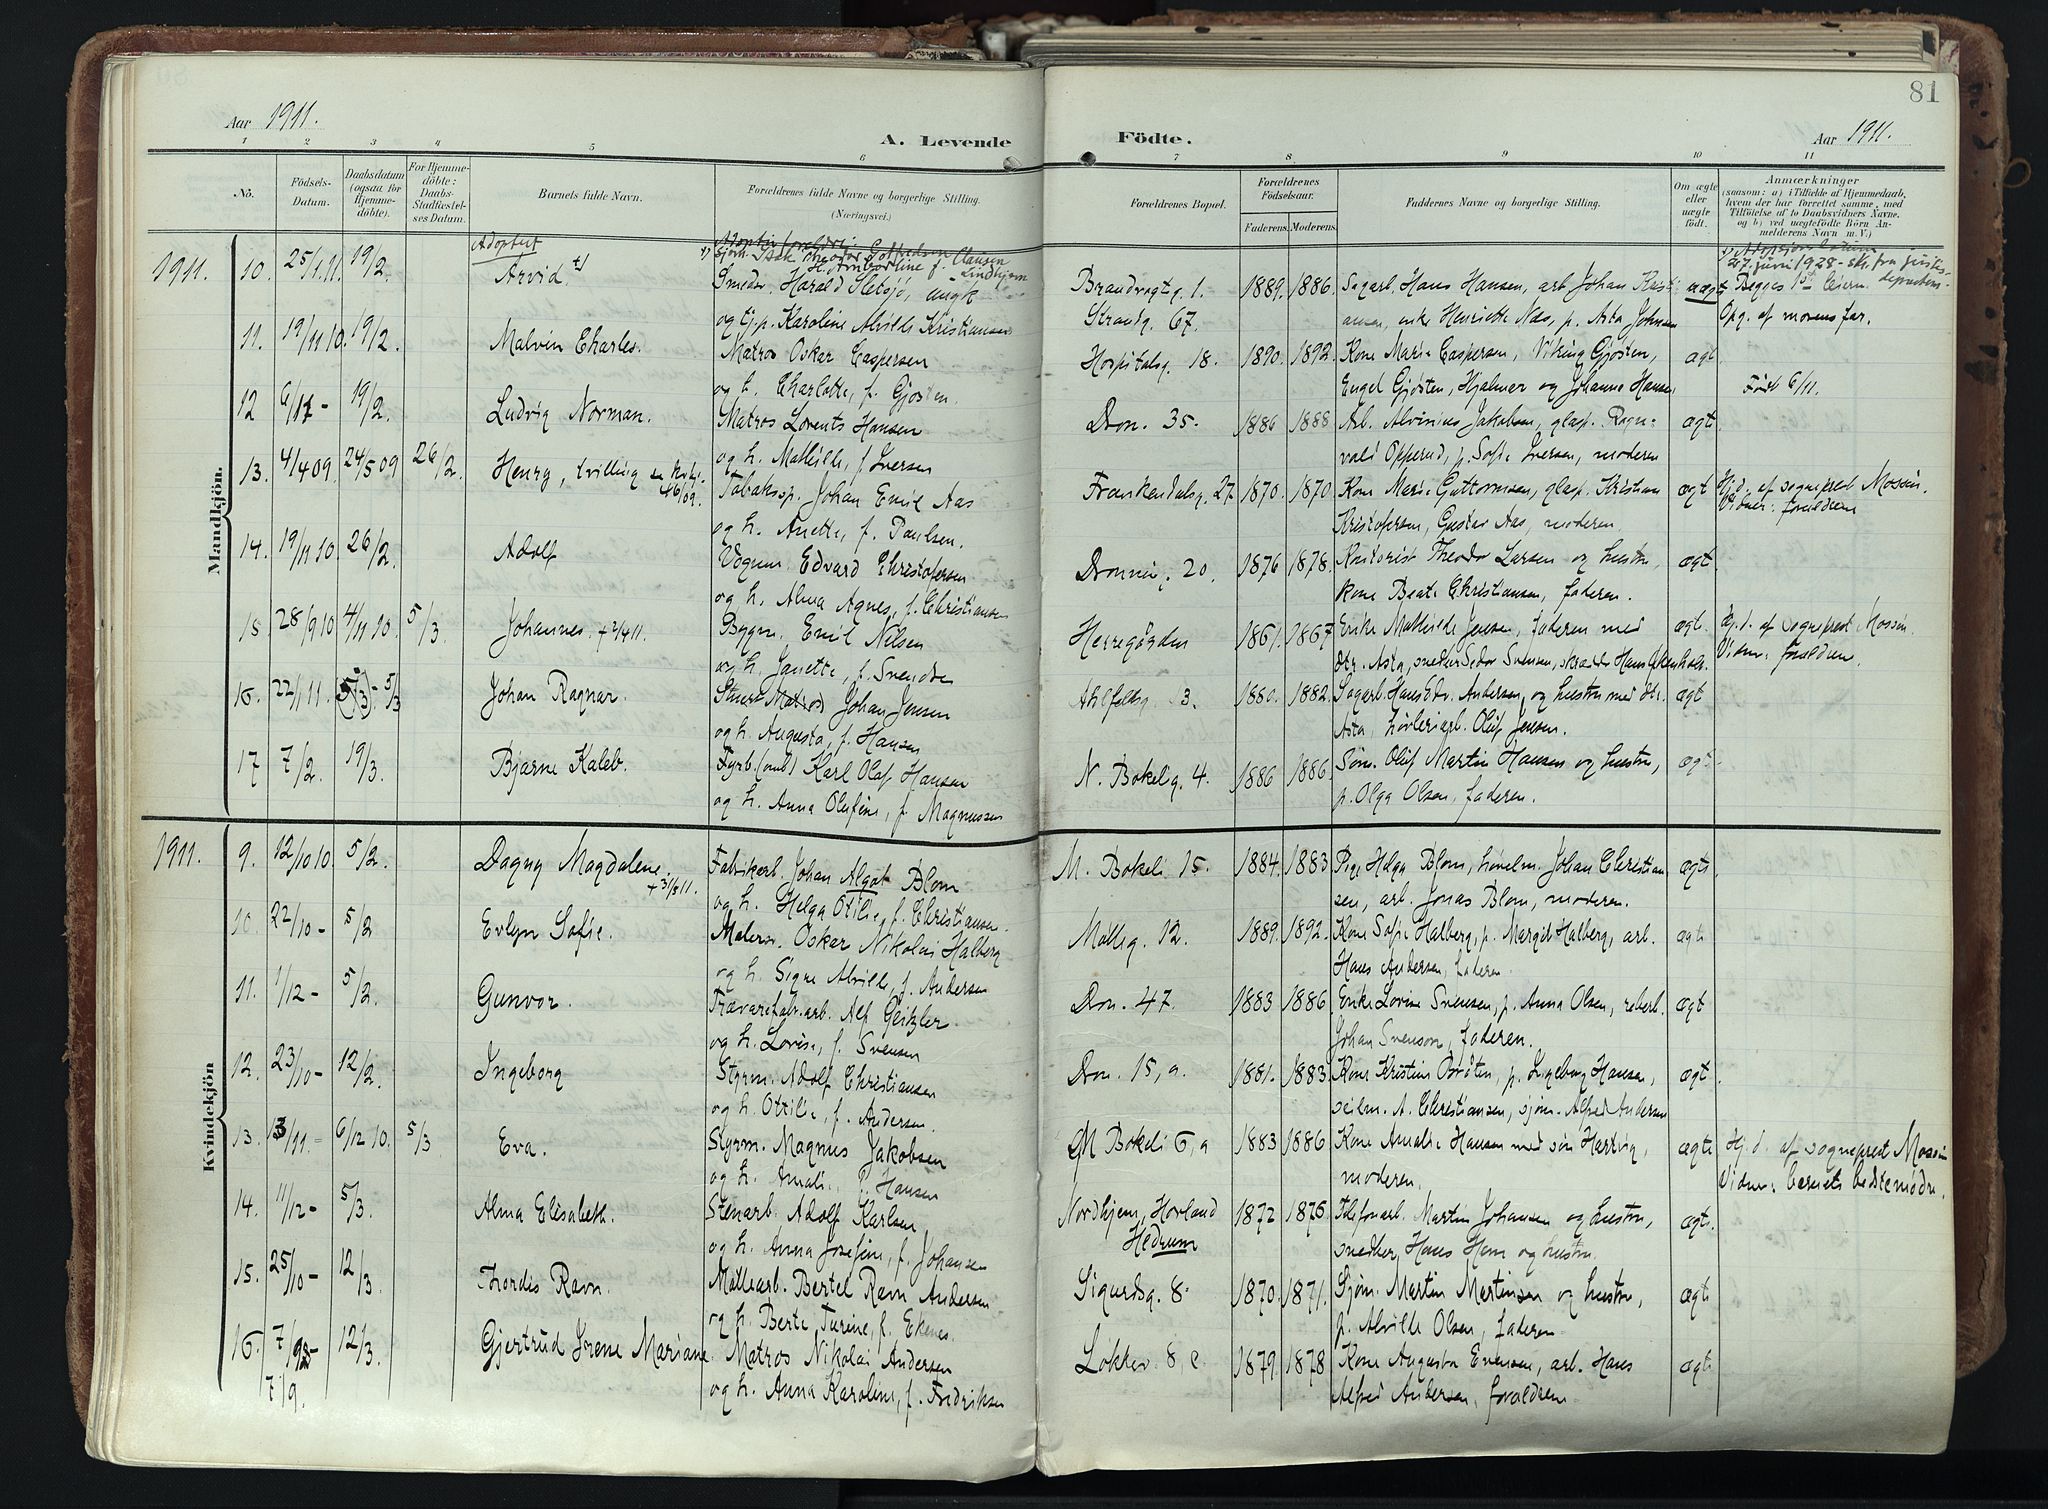 81
Aar 1911.
A. Levende Födte.
Aar 1911.
1 2 3 4 5 6 7 8 9 10 11
No.
Födsels-Datum.
Daabsdatum (ogsaa for Hjemmedöbte).
For Hjemmedöbte: Daabs-Stadfæstelses Datum.
Barnets fulde Navn.
Forældrenes fulde Navne og borgerlige Stilling. (Næringsvei.)
Forældrenes Bopæl.
Forældrenes Födselsaar.
Faderens. Moderens.
Faddernes Navne og borgerlige Stilling.
Om ægte eller uægte födt.
Anmærkninger
(saasom: a) i Tilfælde af Hjemmedaab, hvem der har forrettet samme, med Tilföielse af to Daabsvidners Navne, og b) ved uægtefödte Börn Anmelderens Navn m. V.)
Mandkjön.
1911. 10. 25/1.11. 19/2. Adoptert Arvid
Smedsv. Harald Sletsjö, ungk
og tj.p. Karoline Alvilde Kristiansen
Brandvagtg. 1. 1889. 1886. Sagarb. Hans Hansen, arb Johan Kristi
Strandg. 67. ansen, enke Henriette Næs, p. Asta Johnsen
uægt Begges 1ste leierm.
Opg. af morens far.
27 juni 1928 - skr. fra justisdepartem.
11. 19/11 10. 19/2. Malvin Charles.
Matros Oskar Caspersen
og h. Charlotte, f. Gjösten.
Hospitalsg. 18. 1890. 1892. Kone Marie Caspersen, Viking Gjösten,
Engel Gjösten, Hjalmar og Johanne Hansen
ægt
12 6/11 - 19/2. Ludvig Norman.
Matros Lorents Hansen
og h. Mathilde, f. Iversen
Dron. 35. 1886 1888 Arb. Alvinius Jakobsen, glasp. Ragn-
vald Opperud, p. Sofie Iversen, moderen
ægt
Födt 6/11.
13. 4/4 09 24/5 09 26/2. Henry, tvilling
Tabaksp. Johan Emil Aas
og h. Anette, f. Paulsen.
Frankendalsg. 27 1870. 1870 Kone Marie Guttormsen, glasp. Kristian
Kristofersen, Gustav Aas, moderen.
ægt Hj.d. af sogneprest Mossin.
Vidner: forældrene
14. 19/11 10. 26/2. Adolf
Vognm. Edvard Christofersen
og h. Alma Agnes, f. Christiansen
Dronnin. 20. 1876 1878. Kontorist Theodor Larsen og hustru,
kone Beate Christiansen, faderen.
ægt
15. 28/9 10 4/11 10. 5/3. Johannes. + 2/4 11.
Bygm. Emil Nilsen
og h. Janette, f. Svendsen
Herregården 1861. 1867 Enke Mathilde Jensen, faderen med
dtr. Asta, snedker Sedor Svensen, skrædder Hans Akenholt.
ægt. Hj.d. af Sogneprest Mossin.
Vidner: forældrene.
16. 22/1 11. 5/3 Johan Ragnar.
Matros Johan Jensen
og h. Augusta, f. Hansen
Ahlfeldsg. 3. 1880. 1882. Sagarb. Hans Edv. Andersen, og hustru med dtr.
Asta, høvleriarb. Oluf Jensen.
ægt
17 7/2. 19/3. Bjarne Kaleb.
Fyrb. Karl Olaf Hansen
og h. Anna Olufine, f. Magnussen
N. Bokelig. 4. 1886 1886. Söm. Oluf Martin Hansen og hustru,
p. Olga Olsen, faderen.
ægt
Kvindekjön
1911. 9. 12/10 10. 5/2. Dagny Magdalene. + 31/8 11.
Fabrikarb. Johan Algot Blom
og h. Helga Otilie, f. Christiansen.
M. Bokeli 15. 1884. 1883 Pige Helga Blom, hövelm. Johan Christian
sen, arb. Jonas Blom, moderen.
ægt
10. 22/10 - 5/2 Evlyn Sofie.
Malersv. Oskar Nikolai Halberg
og h. Signe Alvilde, f. Andersen
Mölleg. 12. 1889. 1892. Kone Sofie Halberg, p. Margit Halberg, arb.
Hans Andersen, faderen.
ægt
11. 1/12 - 5/2. Gunvor.
Trævarefabr.arb. Alf Geitzler
og h. Lovise, f. Svensen
Dron. 47. 1883 1886. Enke Lovise Svensen, p. Anna Olsen, reberb.
Johan Svenson, faderen.
ægt
12. 23/10 - 12/2. Ingeborg
Styrm. Adolf Christiansen
og h. Ottilie, f. Andersen.
Dron. 15, a. 1881. 1883. Kone Kristine Bråten, p. Ingeborg Hansen,
seilm. A. Christiansen, sjöm. Alfred Andersen
ægt
13. 13/11 - 6/12 10. 5/3 Eva.
Styrm. Magnus Jakobsen
og h. Amalie f. Hansen
M Bokeli 6, a 1883 1886 Kone Amalie Hansen med sön Hartvig,
moderen.
ægte Hj.d. af sogneprest Mossin
Vidner: barnets bedstemødre.
14. 11/12 - 5/3. Alma Elisabeth.
Stenarb. Adolf Karlsen
og h. Anna Josefine, f. Johansen
Nordhjem, Hovland Hedrum 1872 1875 Telefonarb. Martin Johansen og hustru,
snedker Hans Hem og hustru.
ægt.
15. 25/10 - 12/3. Thordis Ravn.
Möllearb. Bertel Ravn Andersen
og h. Berte Turine, f. Ekenes.
Sigurdsg. 8. 1870. 1871. Sjöm. Martin Martinsen og hustru,
p. Alvilde Olsen, faderen
ægt
16. 12/3. Gjertrud Irene Mariane
7/9.
Matros Nikolai Andersen
og h. Anna Karoline, f. Fredriksen
Løkkev. 8, c 1879. 1878 Kone Augusta Evensen, arb. Hans
Alfred Andersen, forældrene
ægt